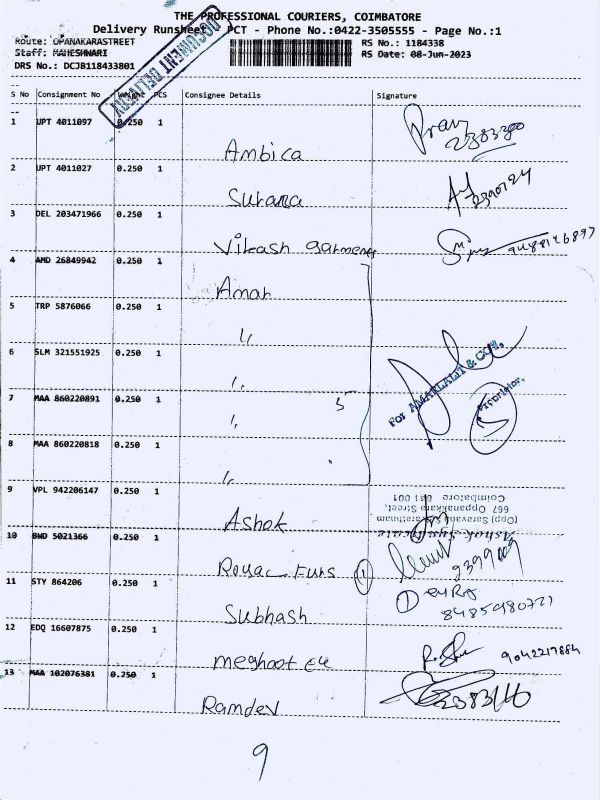 THE PROFESSIONAL COURIERS, COIMBATORE
Delivery Runsheet PCT - Phone No.:0422-3505555 - Page No.:1
Route: OPANAKARASTREET RS No.: 1184338
Staff: MAHESHWARI RS Date: 08-Jun-2023
DRS No.: DCJB118433801
DOCUMENT DELIVERY
S No Consignment No Weight PCS Consignee Details Signature
1 UPT 4011097 0.250 1 Ambica
2 UPT 4011027 0.250 1 Surana
3 DEL 203471966 0.250 1 Vikash garments
4 AMD 26849942 0.250 1 Amar
5 TRP 5876066 0.250 1 "
6 SLM 321551925 0.250 1 "
7 MAA 860220891 0.250 1 " 5
8 MAA 860220818 0.250 1 "
For AMARLALIT & CO.,
Proprietor.
9 VPL 942206147 0.250 1 Ashok
Ashok Syndicate
667 Oppanakkara Street,
Coimbatore 641 001
10 BWD 5021366 0.250 1 Royal Furs 1
11 STY 864206 0.250 1 Subhash 1
12 EDQ 16607875 0.250 1
13 MAA 102076381 0.250 1 Ramdev
9